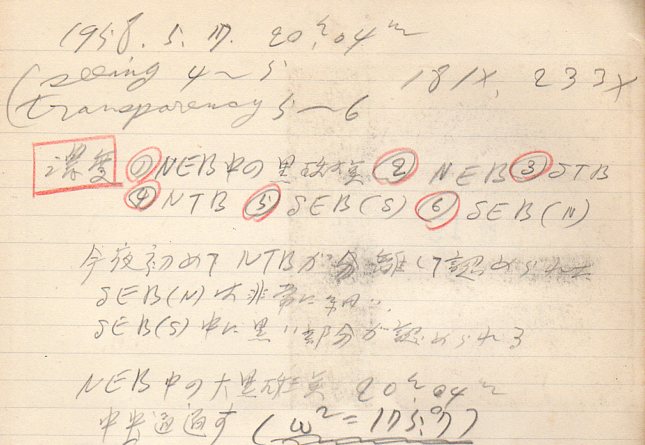 1958. 5. 17. 20h.04m
(seeing 4~5 181X, 233X
(transparency 5~6
濃度 ① NEB中の黒斑 ② NEB ③ STB
④ NTB ⑤ SEB(S) ⑥ SEB(N)
今夜初めて NTBが分離して認められた
SEB(N)は非常に
SEB(S)中に黒い部分が認められる
NEB中の大黒斑 20h04m
中央通過す (ω2=175.°7)